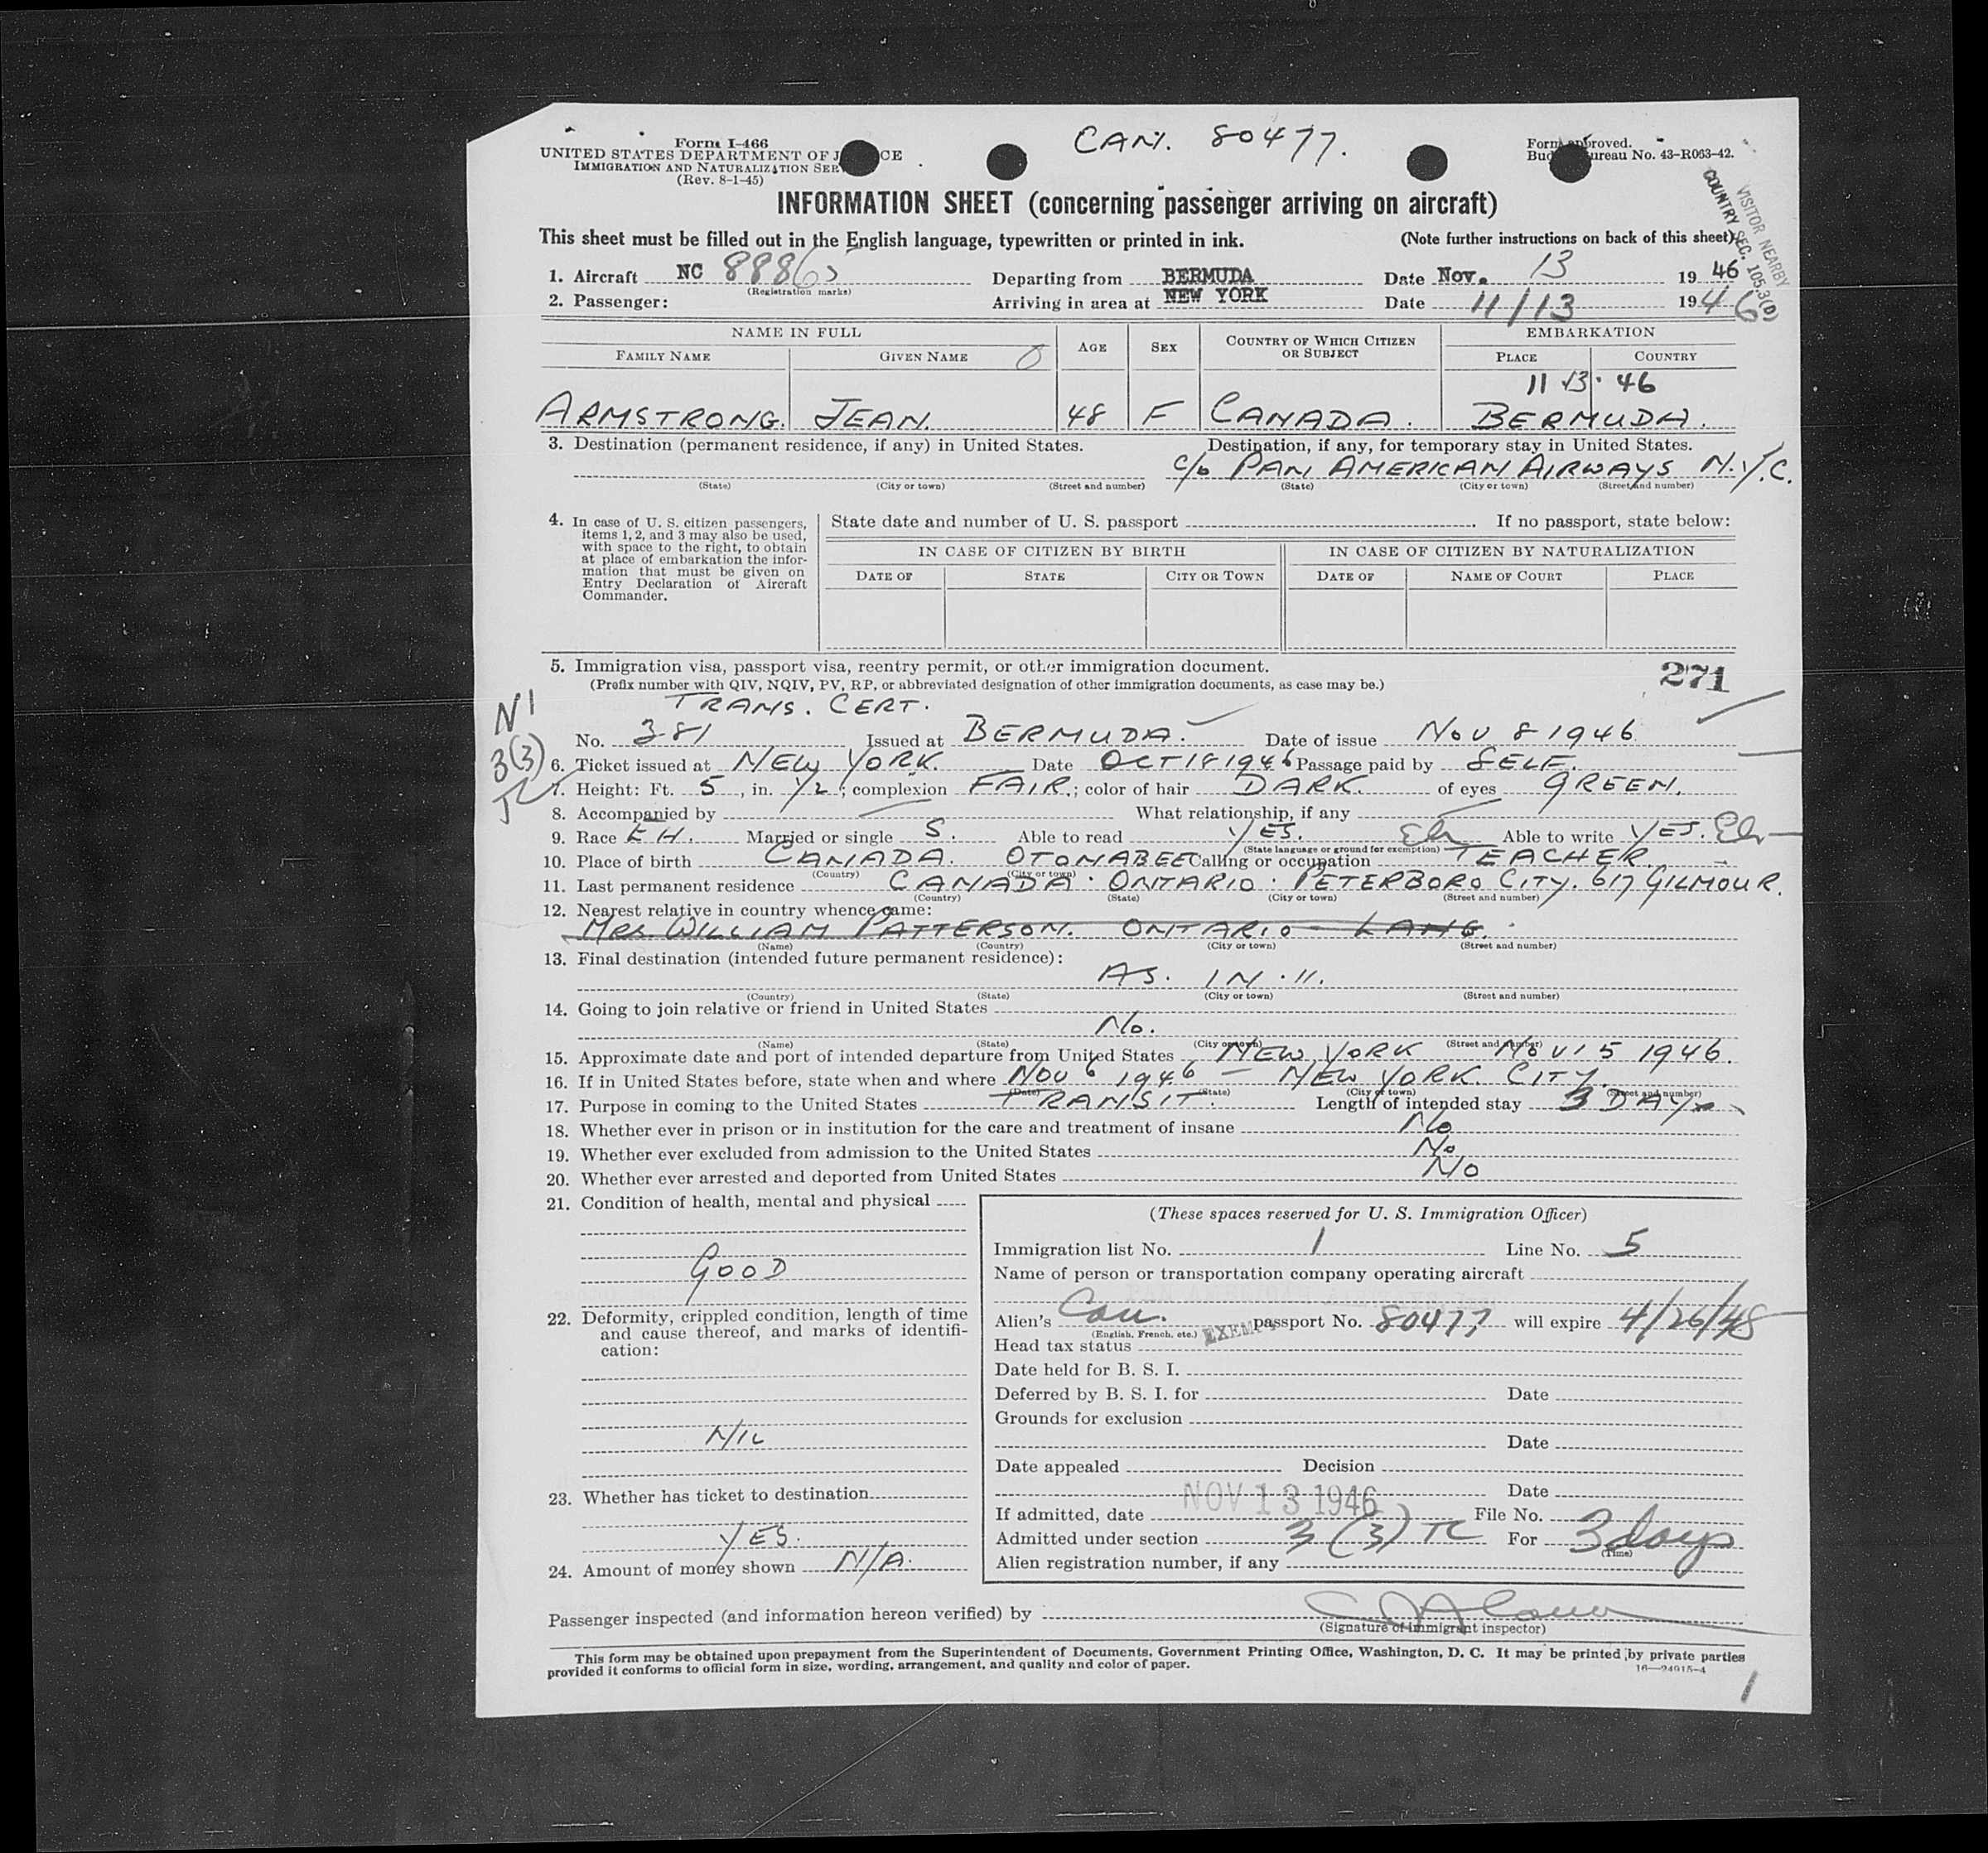 Form I-466
UNITED STATES DEPARTMENT OF J CE
IMMIGRATION AND NATURALIZATION SER
(Rev. 8-1-45)
CAN. 80477.
Form approved.
Bud ureau No. 43-R063-42.
VISITOR NEARBY
COUNTRY SEC. 105.3(D)
INFORMATION SHEET (concerning passenger arriving on aircraft)
This sheet must be filled out in the English language, typewritten or printed in ink. (Note further instructions on back of this sheet)
1. Aircraft NC Departing from BERMUDA Date Nov. 13 1946
(Registration marks)
2. Passenger: Arriving in area at NEW YORK Date 11/13 1946
NAME IN FULL AGE SEX COUNTRY OF WHICH CITIZEN OR SUBJECT EMBARKATION
FAMILY NAME GIVEN NAME PLACE COUNTRY
11 13 · 46
ARMSTRONG. JEAN. 48 F CANADA. BERMUDA.
3. Destination (permanent residence, if any) in United States. Destination, if any, for temporary stay in United States.
c/o PAN AMERICAN AIRWAYS N.Y.C.
(State) (City or town) (Street and number) (State) (City or town) (Street and number)
4. In case of U. S. citizen passengers,
items 1, 2, and 3 may also be used,
with space to the right, to obtain
at place of embarkation the infor-
mation that must be given on
Entry Declaration of Aircraft
Commander.
State date and number of U. S. passport . If no passport, state below:
IN CASE OF CITIZEN BY BIRTH IN CASE OF CITIZEN BY NATURALIZATION
DATE OF STATE CITY OR TOWN DATE OF NAME OF COURT PLACE
5. Immigration visa, passport visa, reentry permit, or other immigration document. 271
(Prefix number with QIV, NQIV, PV, RP, or abbreviated designation of other immigration documents, as case may be.)
TRANS. CERT.
3(3)
No. 381 Issued at BERMUDA. Date of issue NOV 8 1946
6. Ticket issued at NEW YORK. Date OCT 18 1946 Passage paid by SELF.
7. Height: Ft. 5, in. 1/2; complexion FAIR.; color of hair DARK. of eyes GREEN.
8. Accompanied by What relationship, if any
9. Race Married or single S. Able to read YES. Able to write YES.
(State language or ground for exemption)
10. Place of birth CANADA. OTONABEE Calling or occupation TEACHER.
(Country) (City or town)
11. Last permanent residence CANADA · ONTARIO · PETERBORO CITY. 617 GILMOUR.
(Country) (State) (City or town) (Street and number)
12. Nearest relative in country whence came:
MRS. WILLIAM PATTERSON. ONTARIO - LANG.
(Name) (Country) (City or town) (Street and number)
13. Final destination (intended future permanent residence):
AS. IN · 11.
(Country) (State) (City or town) (Street and number)
14. Going to join relative or friend in United States
No.
(Name) (State) (City or town) (Street and number)
15. Approximate date and port of intended departure from United States NEW YORK NOV 15 1946.
16. If in United States before, state when and where NOV 6 1946 - NEW YORK. CITY.
(Date) (State) (City or town) (Street and number)
17. Purpose in coming to the United States TRANSIT. Length of intended stay 3 DAYS
18. Whether ever in prison or in institution for the care and treatment of insane No
19. Whether ever excluded from admission to the United States No
20. Whether ever arrested and deported from United States No
21. Condition of health, mental and physical
GOOD
22. Deformity, crippled condition, length of time
and cause thereof, and marks of identifi-
cation:
NIL
23. Whether has ticket to destination
YES.
24. Amount of money shown N/A.
(These spaces reserved for U. S. Immigration Officer)
Immigration list No. 1 Line No. 5
Name of person or transportation company operating aircraft
Alien's Can. passport No. 80477 will expire 4/26/48
(English, French, etc.) EXEMPT
Head tax status
Date held for B. S. I.
Deferred by B. S. I. for Date
Grounds for exclusion
Date
Date appealed Decision
Date
If admitted, date NOV 13 1946 File No.
Admitted under section 3 (3) TC For 3 days
(Time)
Alien registration number, if any
Passenger inspected (and information hereon verified) by
(Signature of immigrant inspector)
This form may be obtained upon prepayment from the Superintendent of Documents, Government Printing Office, Washington, D. C. It may be printed by private parties
provided it conforms to official form in size, wording, arrangement, and quality and color of paper. 16—24915-4
1